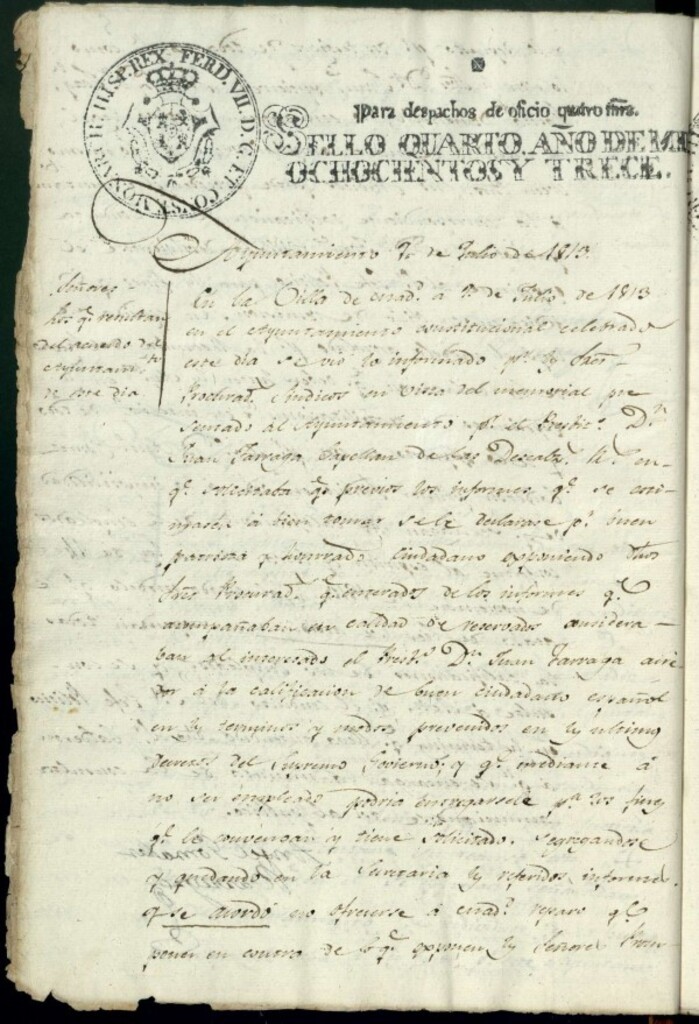 HISP. REX. FERD. VII. D. G. ET CONST. MONARCH.
Para despachos de oficio quatro mrs.
SELLO QUARTO. AÑO DE MIL
OCHOCIENTOS Y TRECE.
Ayuntamiento de Julio de 1813.
Señores
los qe. resultan
del acuerdo del
Ayuntamto.
de este dia
En la Villa de Mad. a de Julio de 1813
en el Ayuntamiento constitucional celebrado
este dia se vio lo informado pr. los Sres.
Procurads. Sindicos en vista del memorial pre
sentado al Ayuntamiento pr. el Presbo. Dn.
Juan Tarraga Capellan de las Descalzs. Rs. en
qe. solicitaba qe. previos los informes qe. se esti
masen á bien tomar se le declarase pr. buen
patriota y honrrado Ciudadano exponiendo dhos
Sres Procurads. qe. enterados de los informes qe.
acompañaban en calidad de reservados considera
ban al interesado el Presbo. Dn. Juan Tarraga acree
dor á la calificacion de buen ciudadano español
en los terminos y modos prevenidos en los ultimos
Decretos del Supremo Govierno; y qe. mediante á
no ser empleado podria entregarsele pa. los fines
qe. le convengan y tiene solicitado, segregandose
y quedando en la Secretaria los referidos informes.
y se acordó no ofrecerse á Mad. reparo qe.
poner en contra de lo qe. exponen los Señores Procu